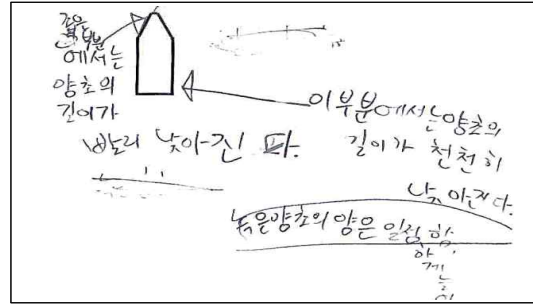 좁은
부분
에서는
양초의
길이가
빨리 낮아진다.
이 부분에서는 양초의
길이가 천천히
낮아진다.
녹은양초의 양은 일정함.
하
게